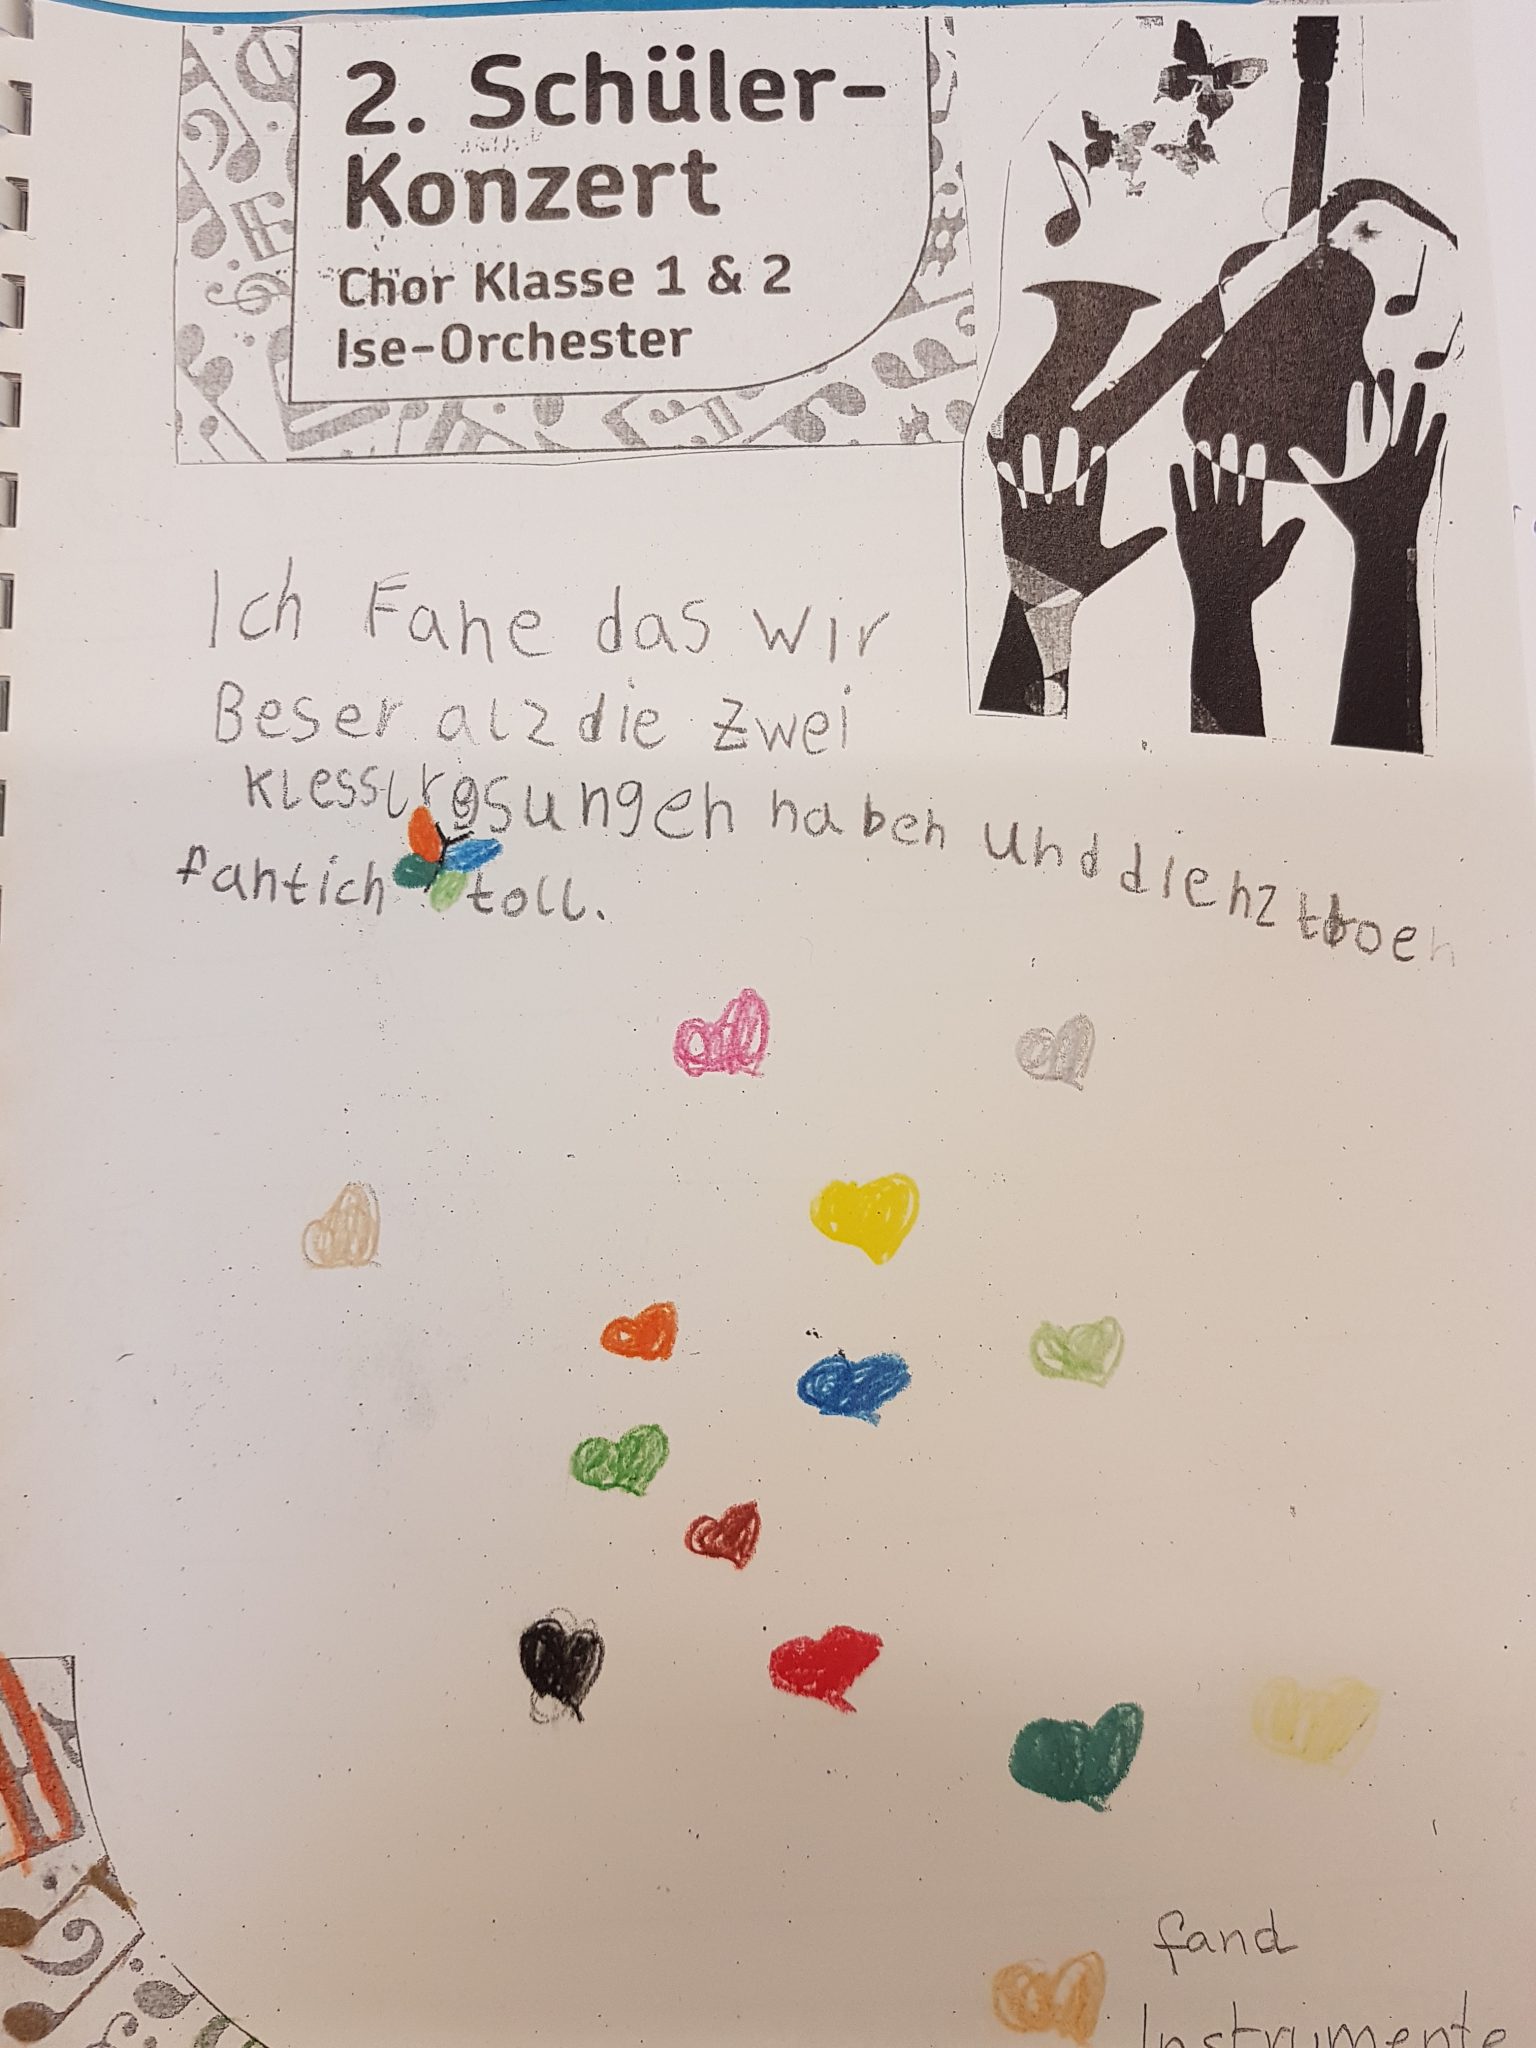 2. Schüler-
Konzert
Chor Klasse 1 & 2
Ise-Orchester
Ich Fane das wir
Beser alz die zwei
klesslresungen haben und die
fantich toll.
fand
Instrumente